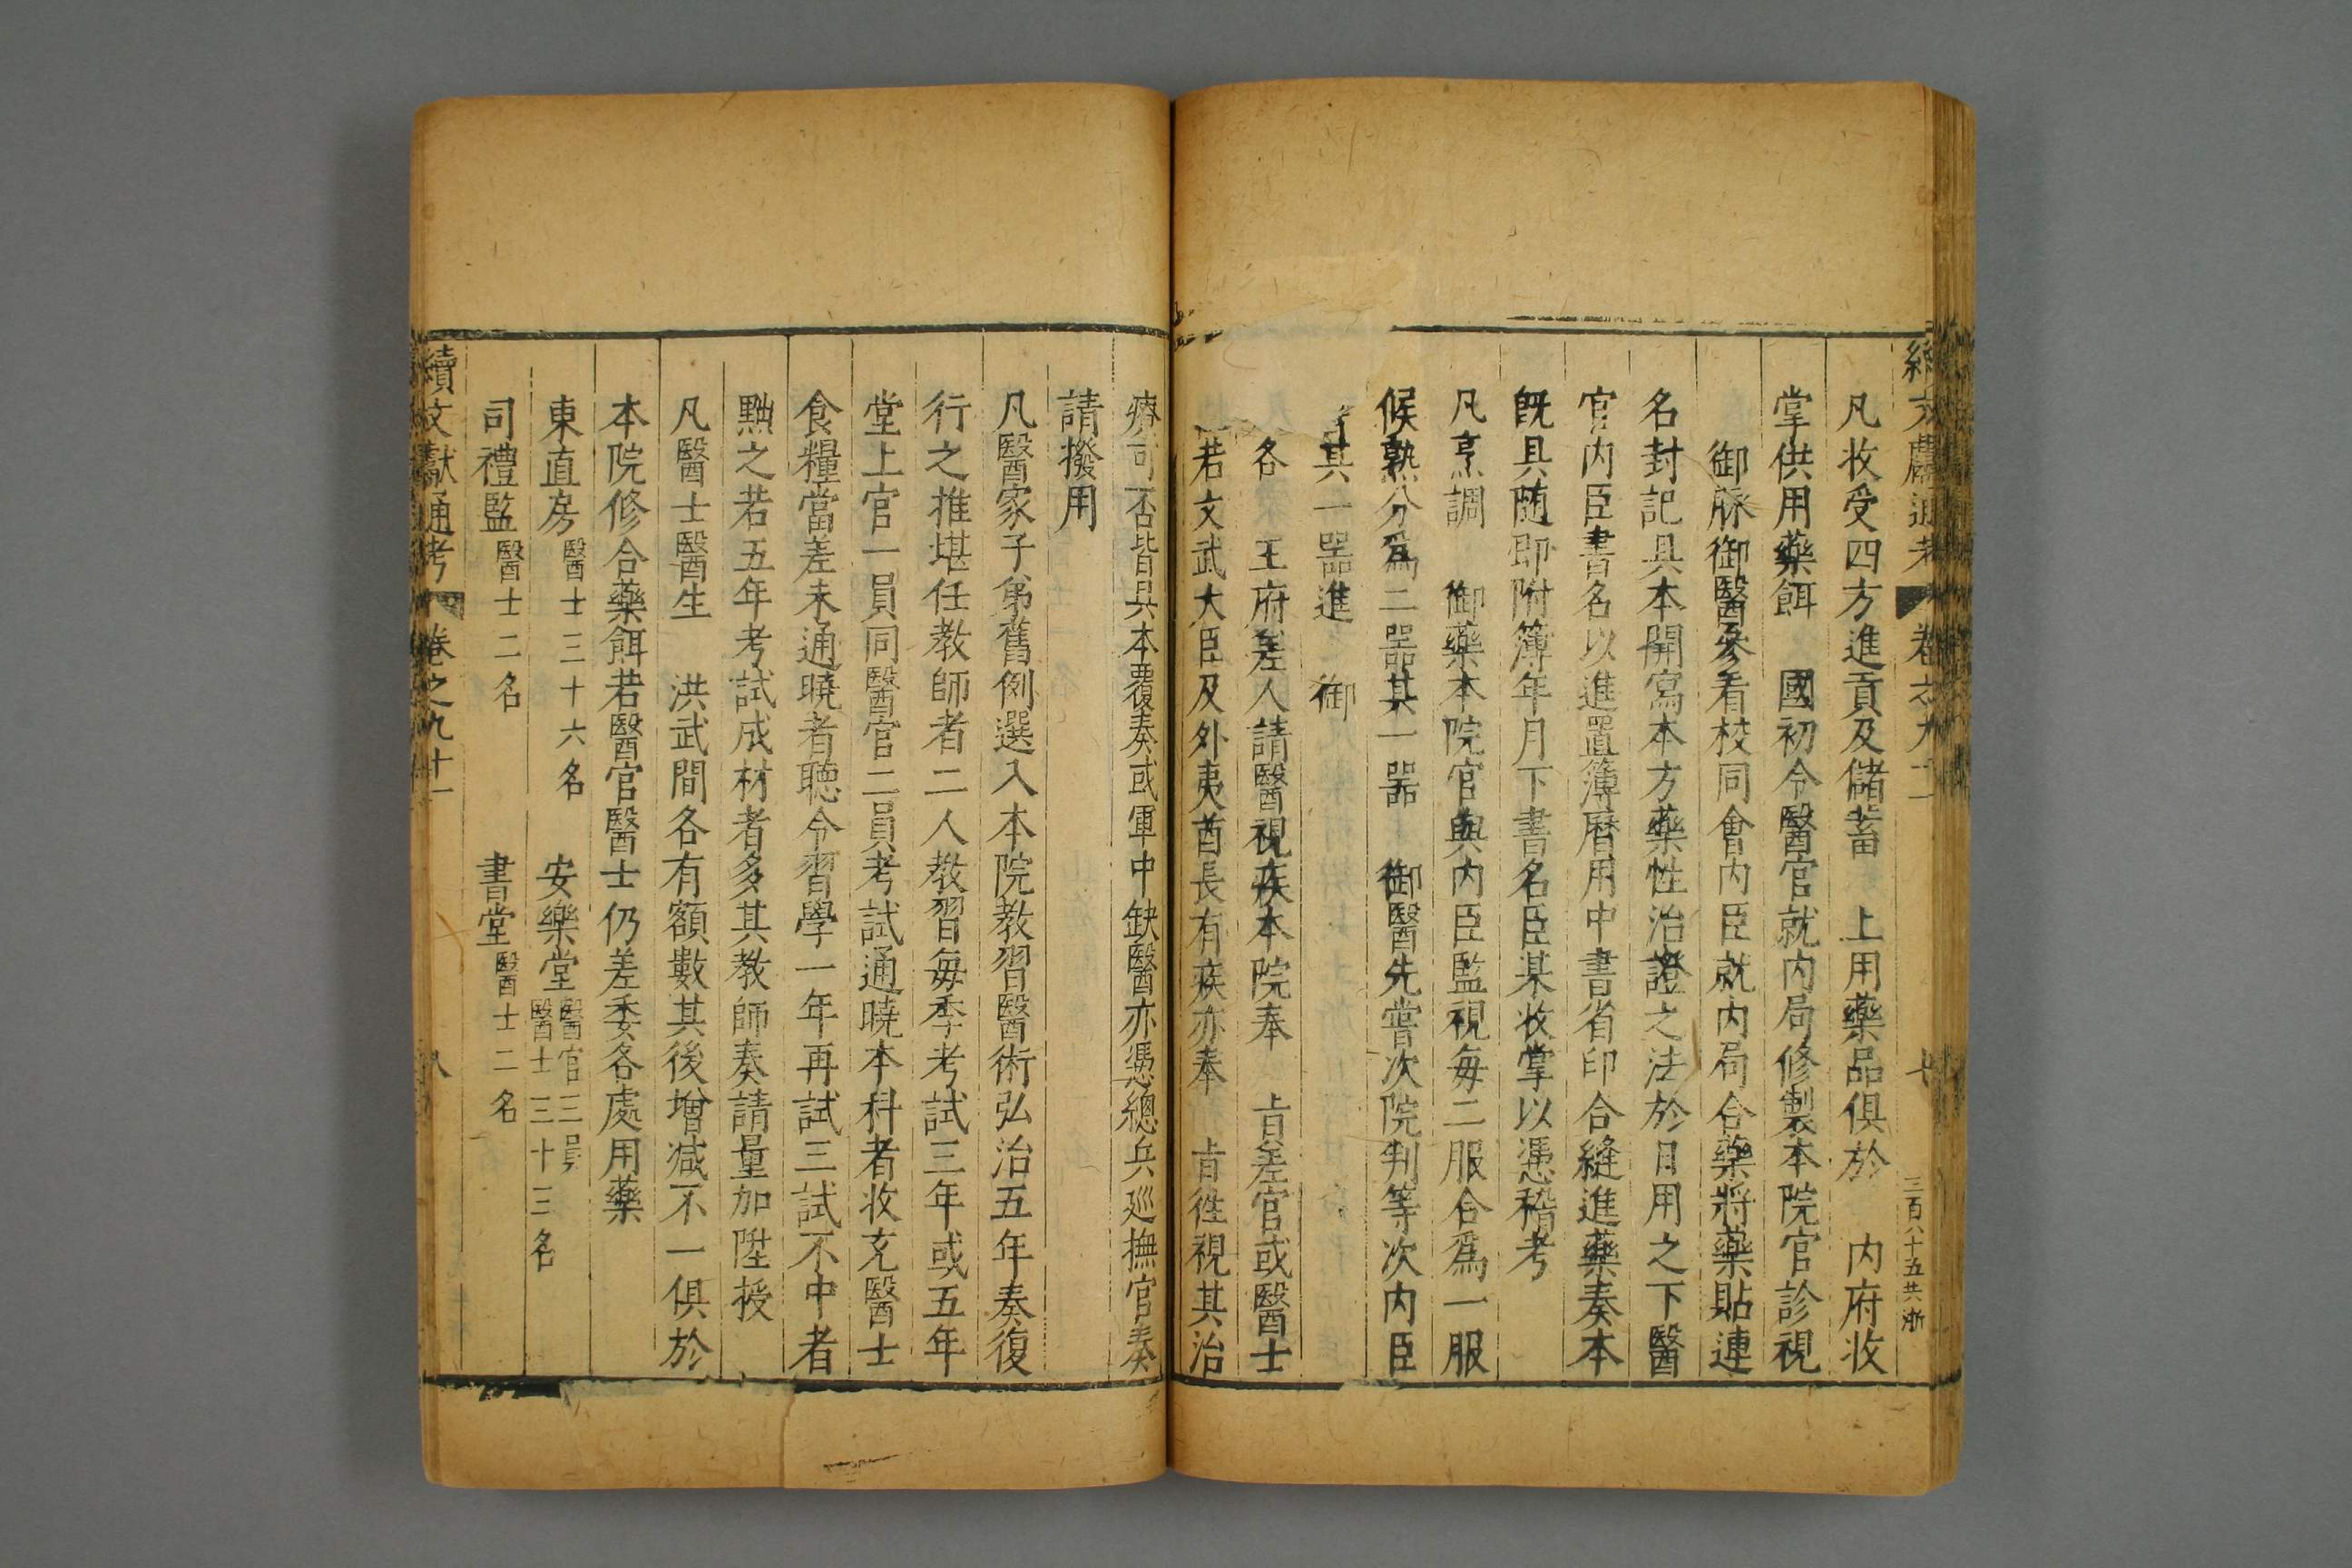 續文獻通考 卷之九十一 七
三百八十五共浙
凡收受四方進貢及儲蓄 上用藥品俱於 內府收
掌供用藥餌 國初令醫官就內局修製本院官診視
御脉御醫參看校同會內臣就內局合藥將藥貼連
名封記具本開寫本方藥性治證之法於日用之下醫
官內臣書名以進置簿曆用中書省印合縫進藥奏本
旣具随即附簿年月下書名臣某收掌以憑稽考
凡烹調 御藥本院官與內臣監視每二服合爲一服
候熟分爲二器其一器 御醫先嘗次院判等次內臣
其一器進 御
各 王府差人請醫視疾本院奉 旨差官或醫士
若文武大臣及外夷酋長有疾亦奉 旨徃視其治
療可否皆具本覆奏或軍中缺醫亦憑總兵巡撫官奏
請撥用
凡醫家子弟舊例選入本院教習醫術弘治五年奏復
行之推堪任教師者二人教習每季考試三年或五年
堂上官一員同醫官二員考試通曉本科者收充醫士
食糧當差未通曉者聽令習學一年再試三試不中者
黜之若五年考試成材者多其教師奏請量加陞授
凡醫士醫生 洪武間各有額數其後增減不一俱於
本院修合藥餌若醫官醫士仍差委各處用藥
東直房醫士三十六名 安樂堂醫官三員醫士三十三名
司禮監醫士二名 書堂醫士二名
續文獻通考 卷之九十一 八